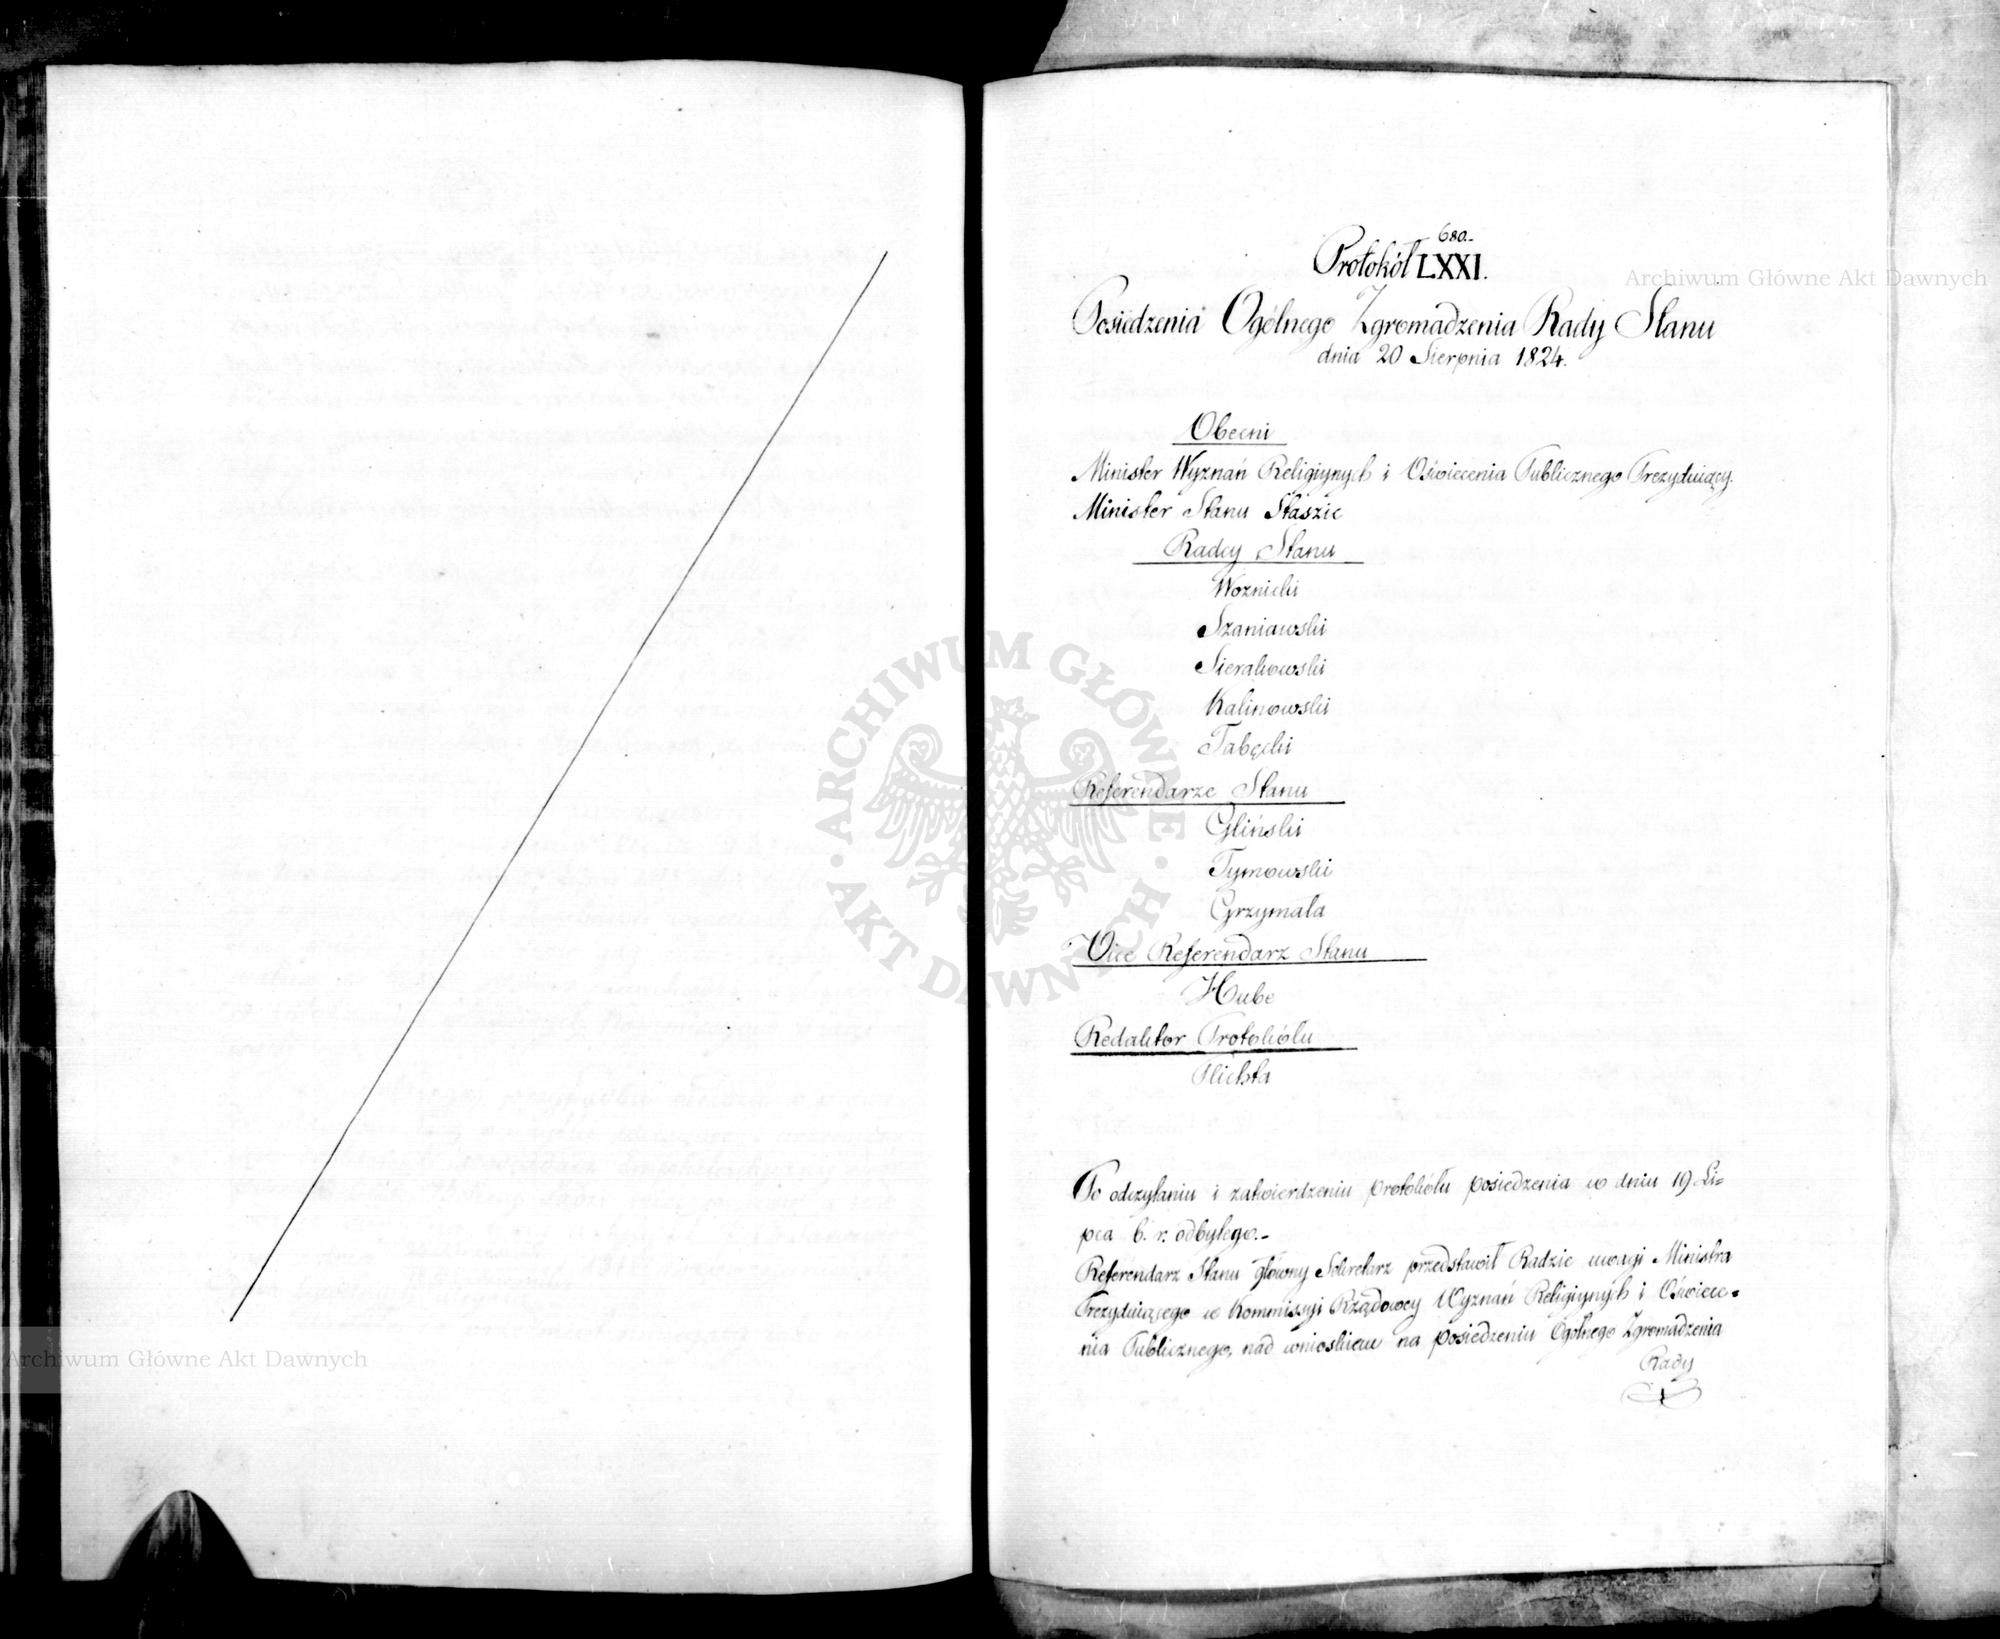 680.
Protokół LXXI.
Posiedzenia Ogólnego Zgromadzenia Rady Stanu
dnia 20 Sierpnia 1824.
Obecni
Minister Wyznań Religiynych i Oświecenia Publicznego Prezyduiący.
Minister Stanu Staszic
Radcy Stanu
Woznicki
Szaniawski
Sierakowski
Kalinowski
Tabęcki
Referendarze Stanu
Gliński
Tymowski
Grzymała
Vice Referendarz Stanu
Hube
Redaktor Protokółu
Plichta
Po odczytaniu i zatwierdzeniu protokółu posiedzenia w dniu 19 Li=
pca b. r. odbytego.-
Referendarz Stanu główny Sekretarz przedstawił Radzie uwagi Ministra
Prezyduiącego w Kommissyi Rządowey Wyznań Religiynych i Oświece=
nia Publicznego, nad wnioskiem na posiedzeniu Ogólnego Zgromadzenia
Rady
Archiwum Główne Akt Dawnych
Archiwum Główne Akt Dawnych
ARCHIWUM GŁÓWNE AKT DAWNYCH